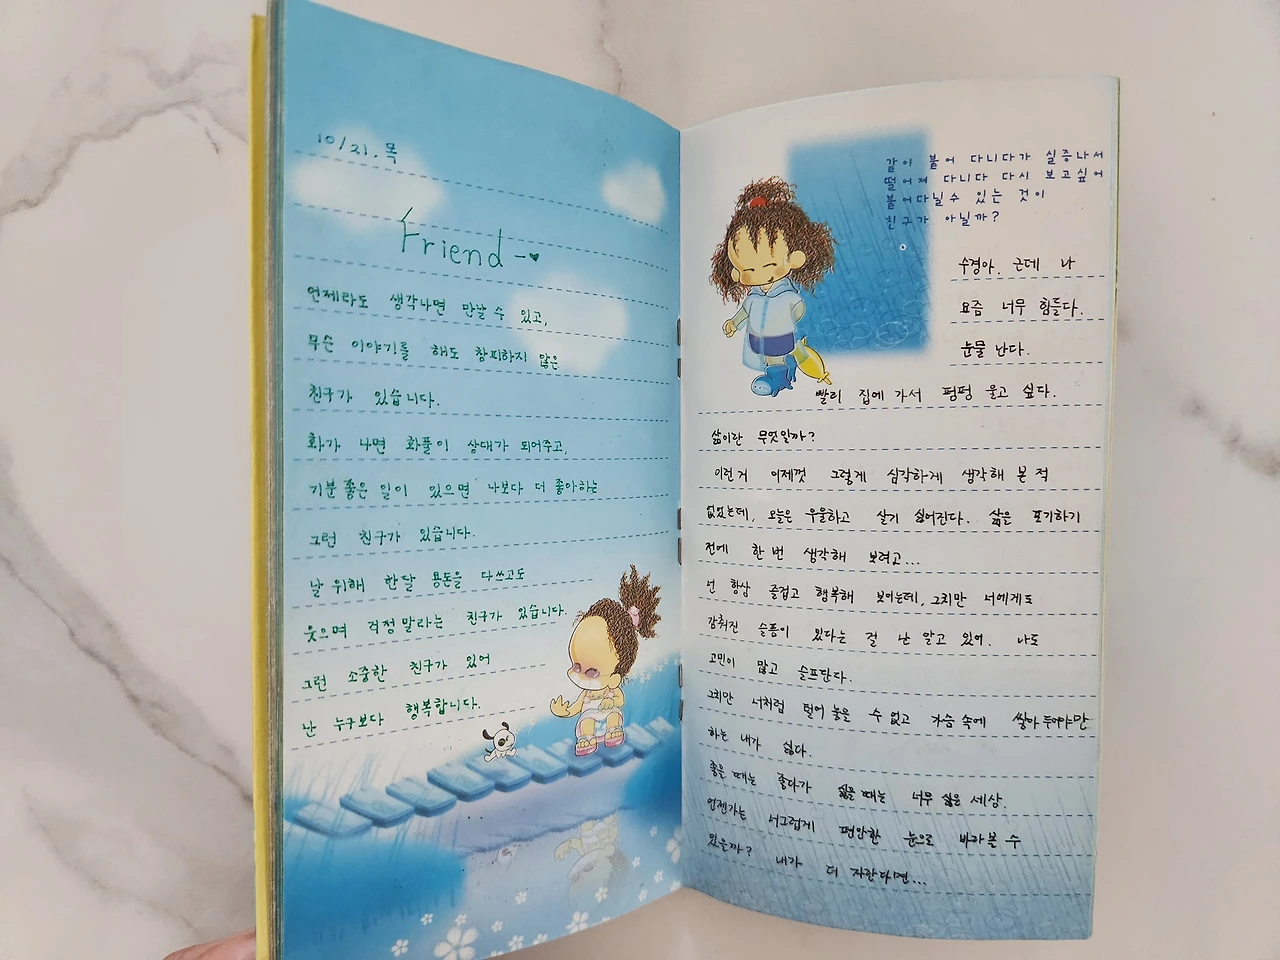 10/21. 목
Friend -♥
언제라도 생각나면 만날 수 있고,
무슨 이야기를 해도 창피하지 않은
친구가 있습니다.
화가 나면 화풀이 상대가 되어주고,
기분 좋은 일이 있으면 나보다 더 좋아하는
그런 친구가 있습니다.
날 위해 한달 용돈을 다쓰고도
웃으며 걱정말라는 친구가 있습니다.
그런 소중한 친구가 있어
난 누구보다 행복합니다.
같이 붙어 다니다가 실증나서
떨어져 다니다 다시 보고싶어
붙어다닐수 있는 것이
친구가 아닐까?
수경아. 근데 나
요즘 너무 힘들다.
눈물 난다.
빨리 집에 가서 펑펑 울고 싶다.
삶이란 무엇일까?
이런거 이제껏 그렇게 심각하게 생각해 본 적
없었는데, 오늘은 우울하고 살기 싫어진다. 삶을 포기하기
전에 한 번 생각해 보려고...
넌 항상 즐겁고 행복해 보이는데, 그치만 너에게도
감춰진 슬픔이 있다는 걸 난 알고 있어. 나도
고민이 많고 슬프단다.
그치만 너처럼 털어 놓을 수 없고 가슴 속에 쌓아 두어야만
하는 내가 싫다.
좋을 때는 좋다가 싫을 때는 너무 싫은 세상.
언젠가는 너그럽게 편안한 눈으로 바라볼 수
있을까? 내가 더 자란다면...